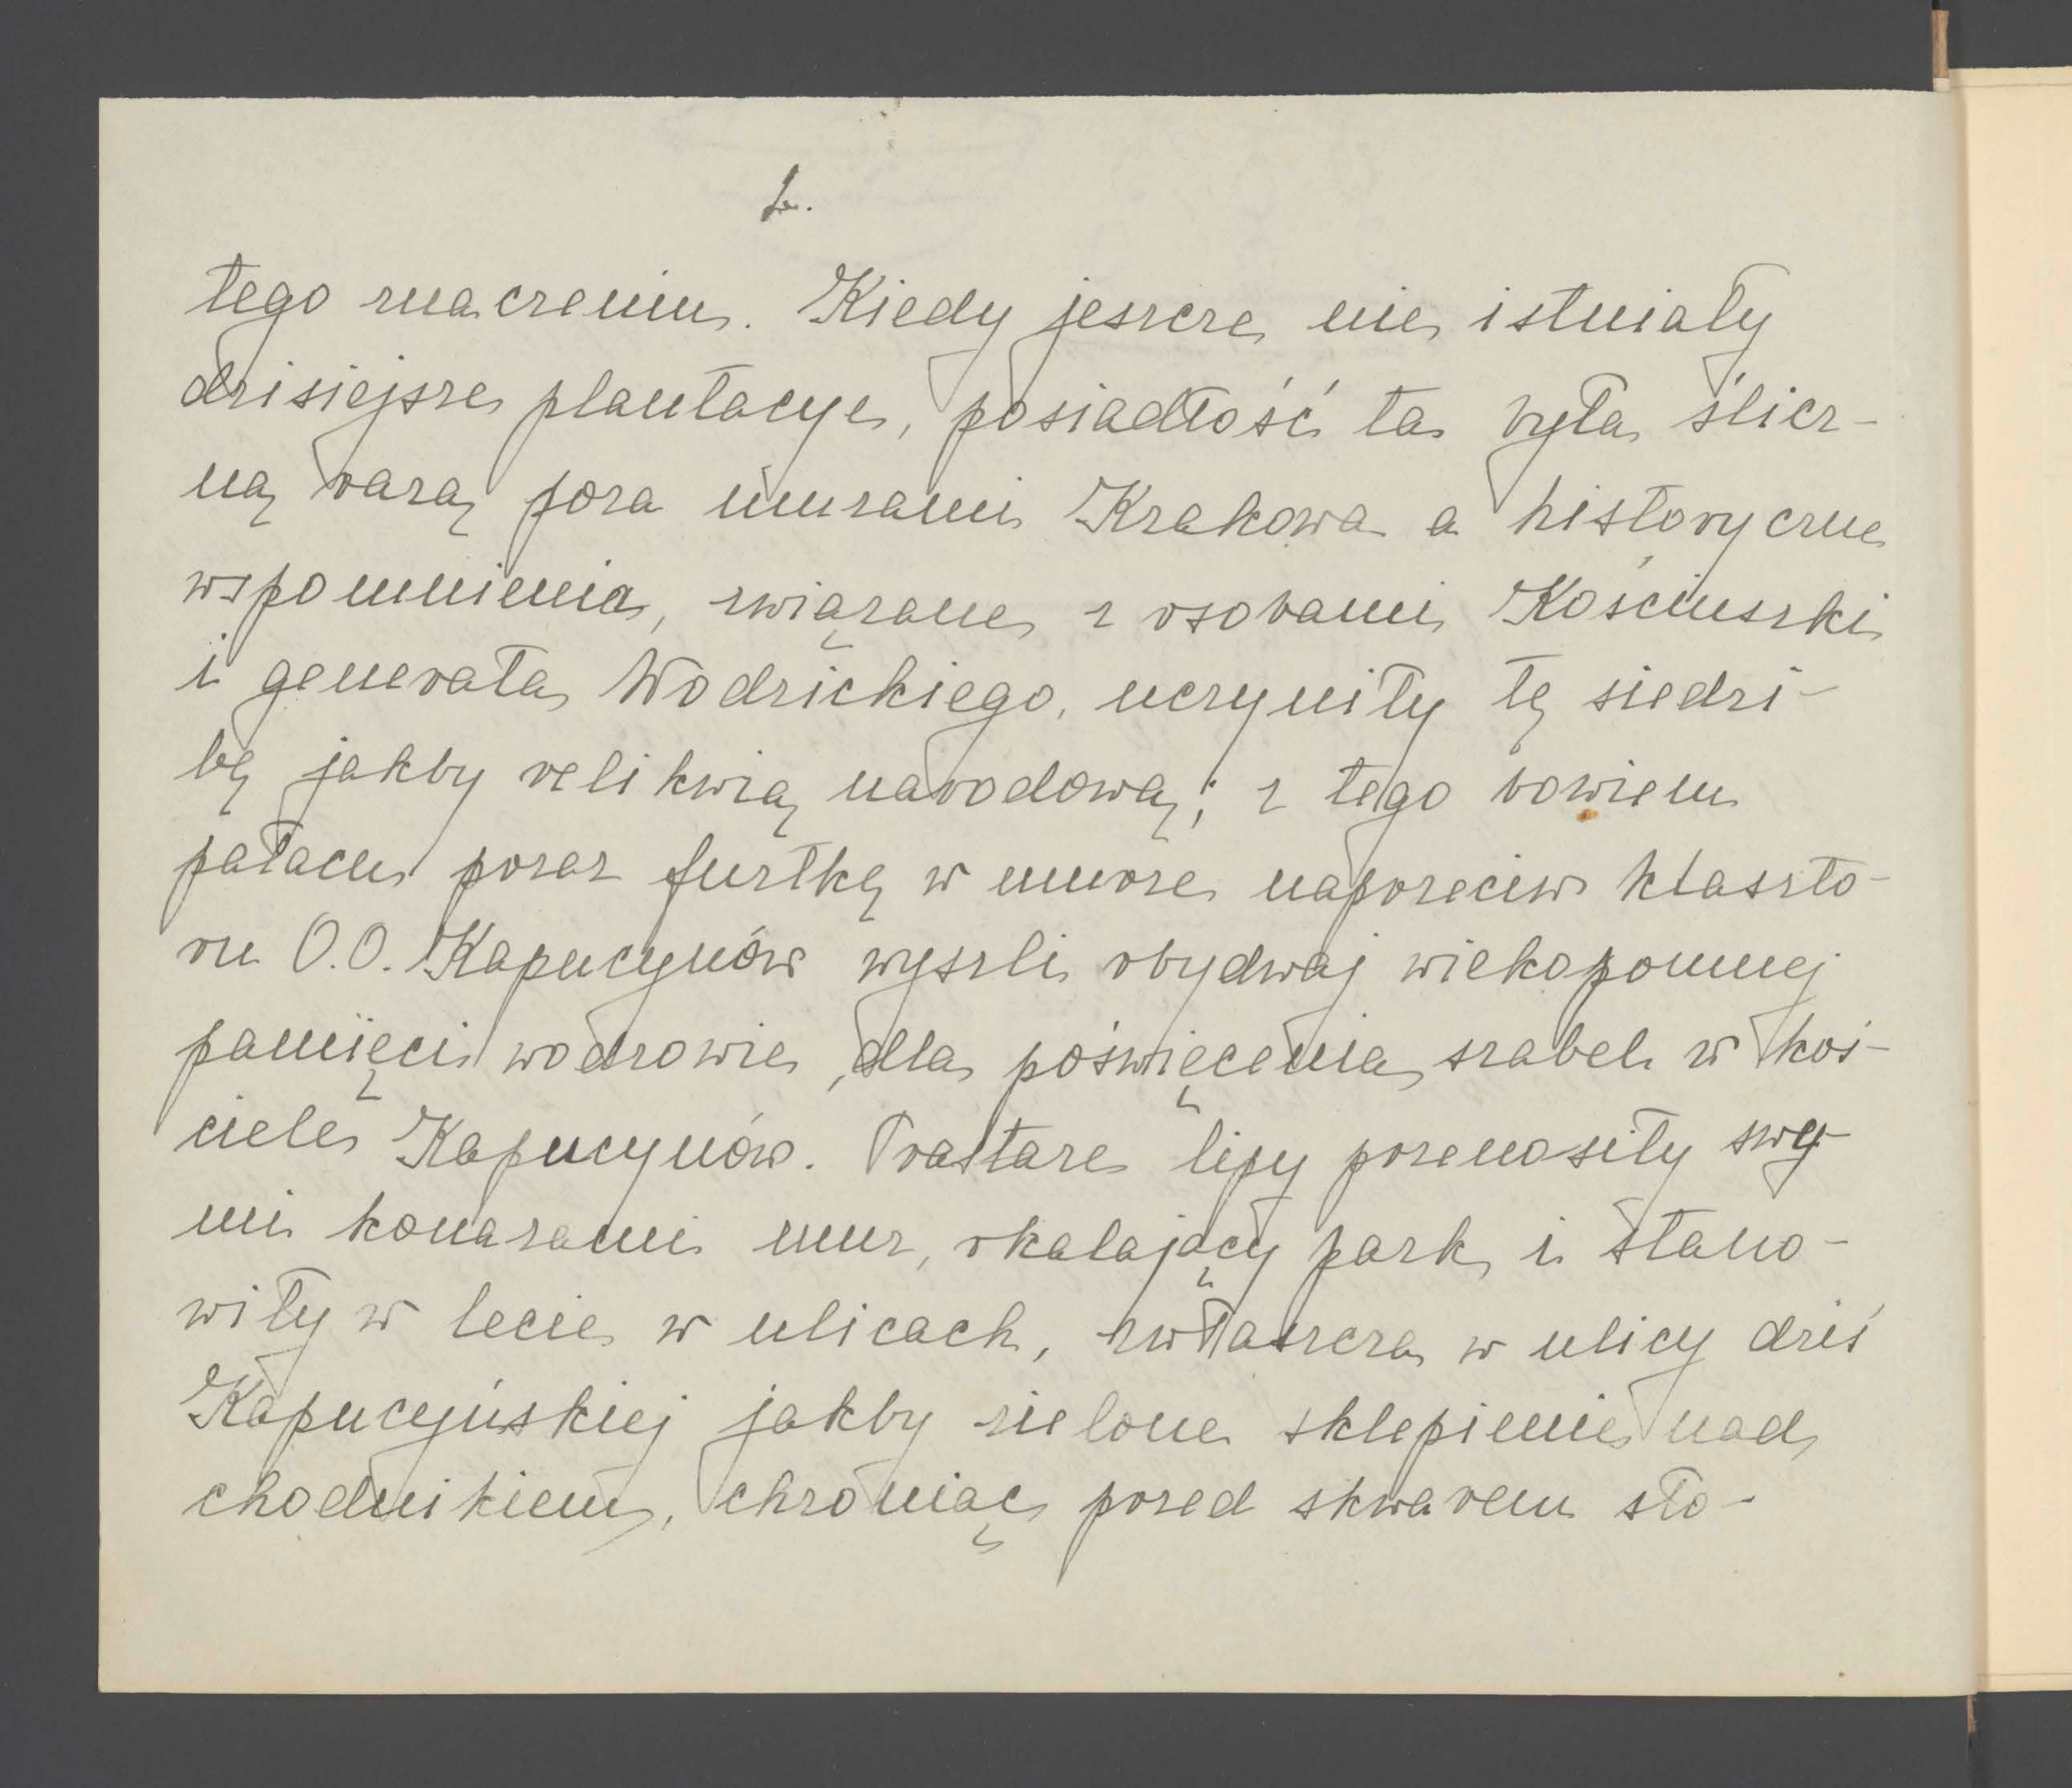 2.
tego znaczeniu. Kiedy jeszcze nie istniały
dzisiejsze plantacye, posiadłość ta była ślicz-
ną oazą poza murami Krakowa a historyczne
wspomnienia, związane z osobami Kościuszki
i generała Wodzickiego, uczyniły tę siedzi-
bę jakby relikwią narodową; z tego bowiem
pałacu przez furtkę w murze naprzeciw klaszto-
ru O.O. Kapucynów wyszli obydwaj wiekopomnej
pamięci wodzowie, dla poświęcenia szabel w koś-
ciele Kapucynów. Prastare lipy przenosiły swy-
mi konarami mur, okalający park i stano-
wiły w lecie w ulicach, zwłaszcza w ulicy dziś
Kapucyńskiej jakby zielone sklepienie nad
chodnikiem, chroniąc przed skwarem sło-